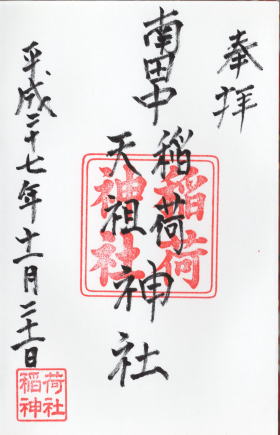 奉拝
南田中
稲荷
天祖
神社
平成二十七年十一月二十一日
稲荷
神社
稲荷
神社